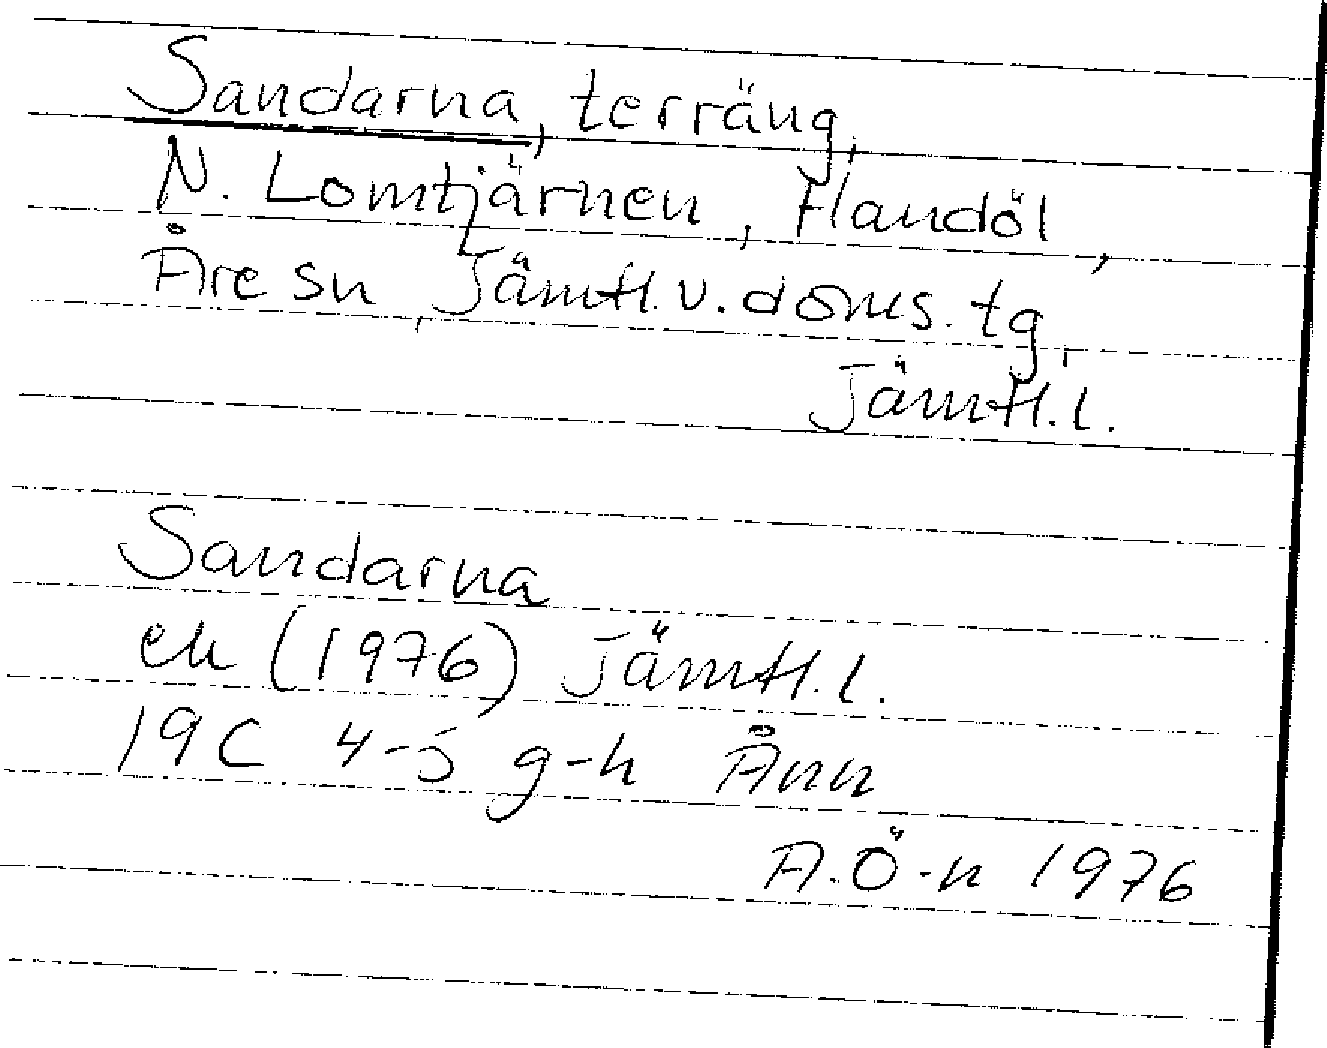 Sandarna, terräng,
N. Lomtjärnen, Handöl,
Åre sn, Jämtl. v. doms. tg,
Jämtl. l.
Sandarna
ek (1976) Jämtl. l.
19C 4-5 g-h Ånn
A. Ö-n 1976